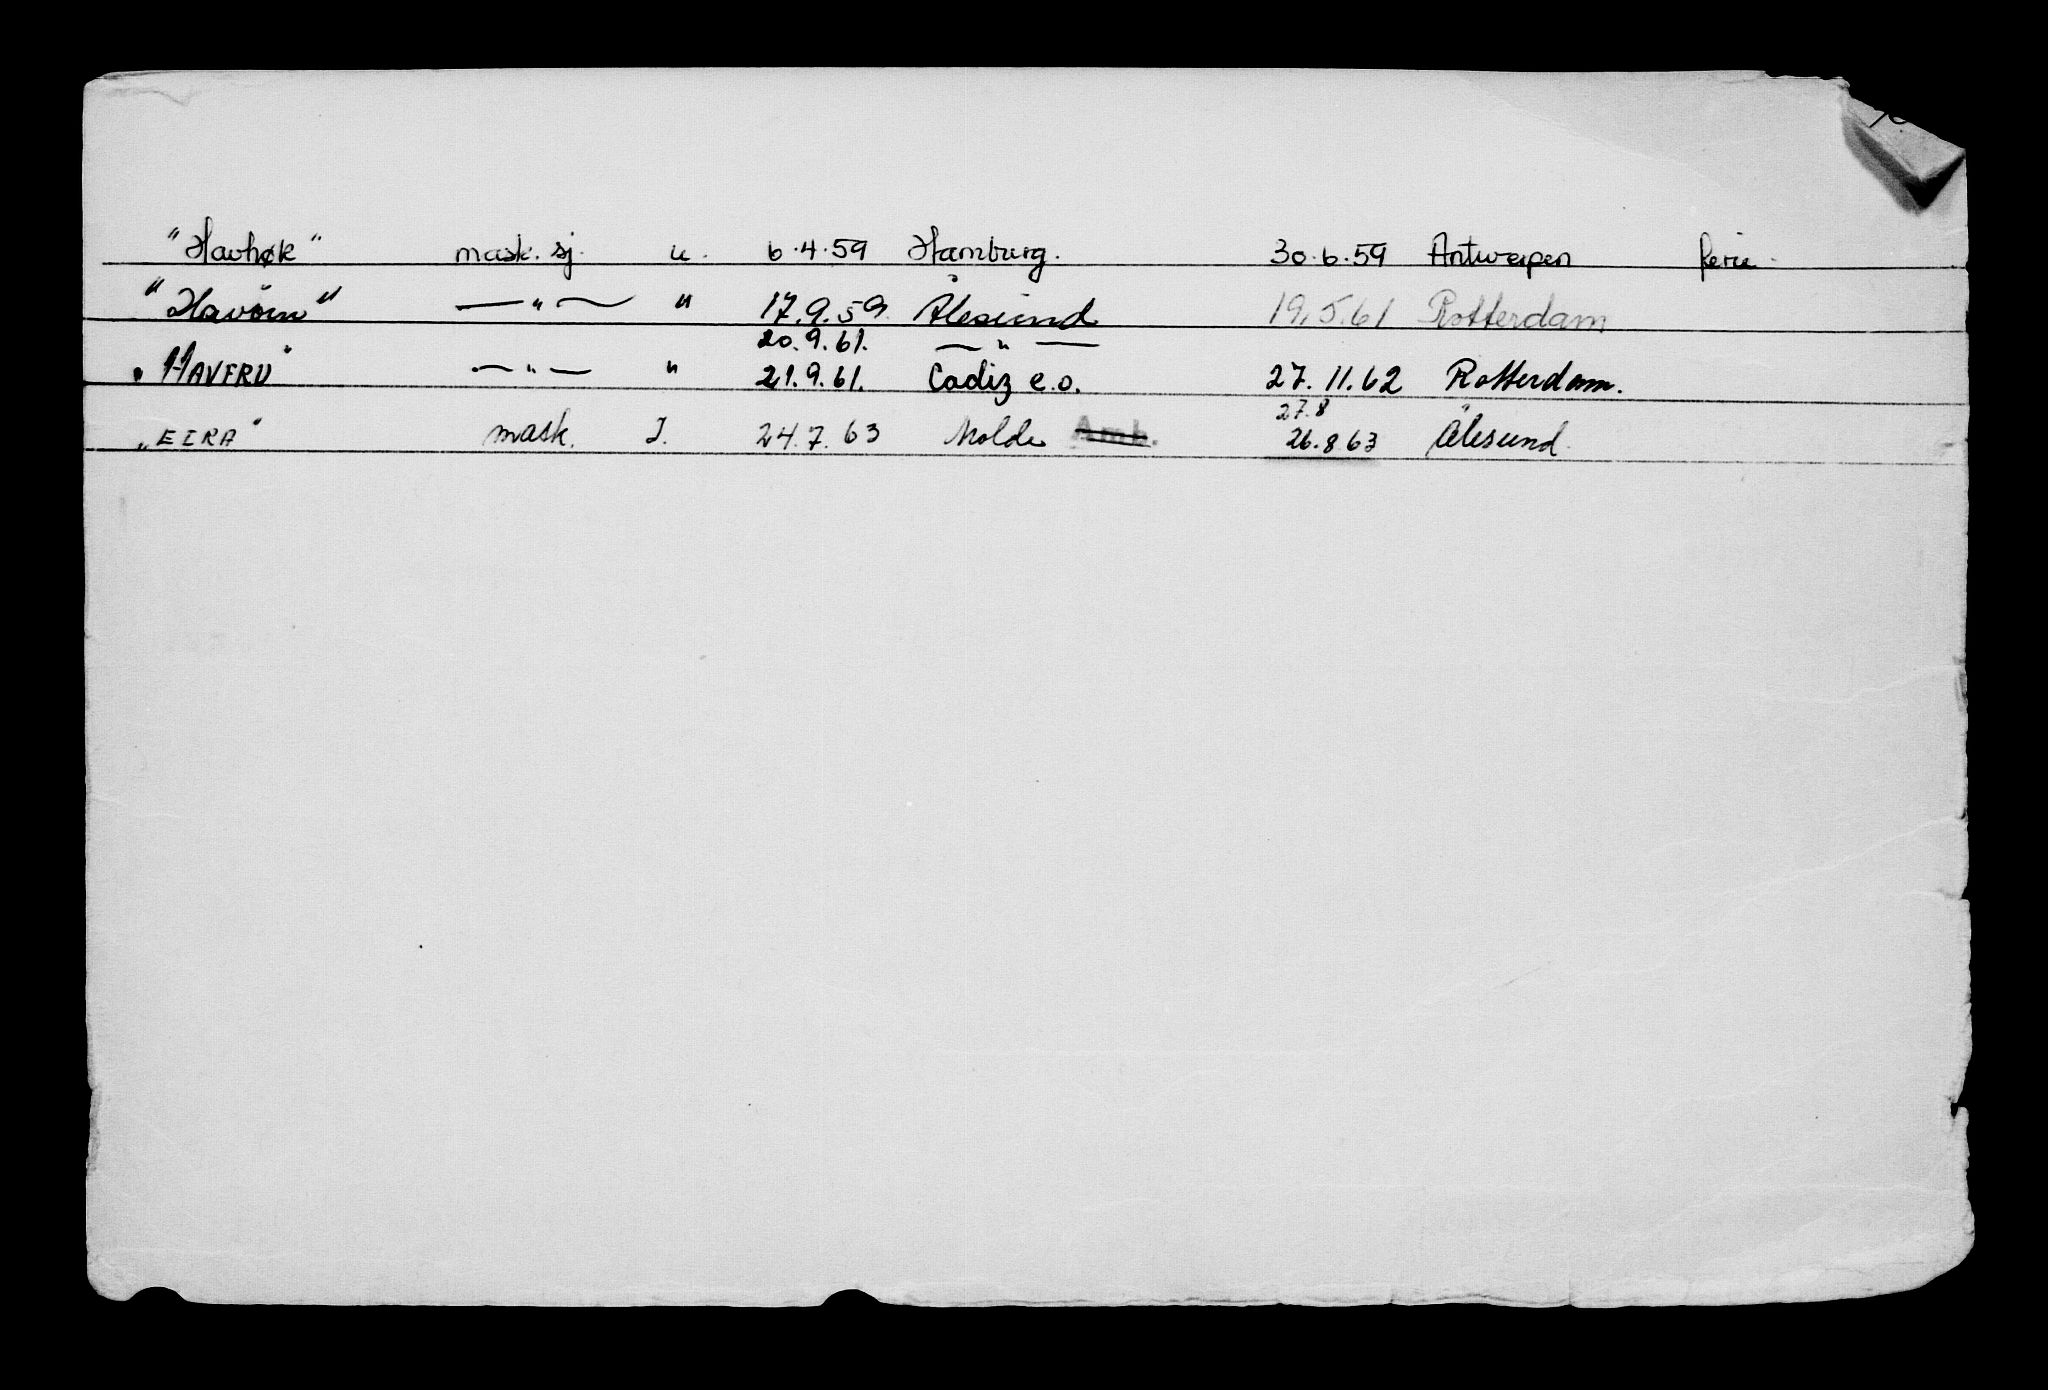 "Havhøk" mask. sj. u. 6.4.59 Hamburg. 30.6.59 Antwerpen ferie.
"Havörn" — " — " 17.9.59 Ålesund 19.5.61 Rotterdam
20.9.61. — " —
"HAVFRU" — " — " 21.9.61. Cadiz e.o. 27.11.62 Rotterdam.
27.8
"EIRA" mask. I. 24.7.63 Molde Amb. 26.8.63 Ålesund.